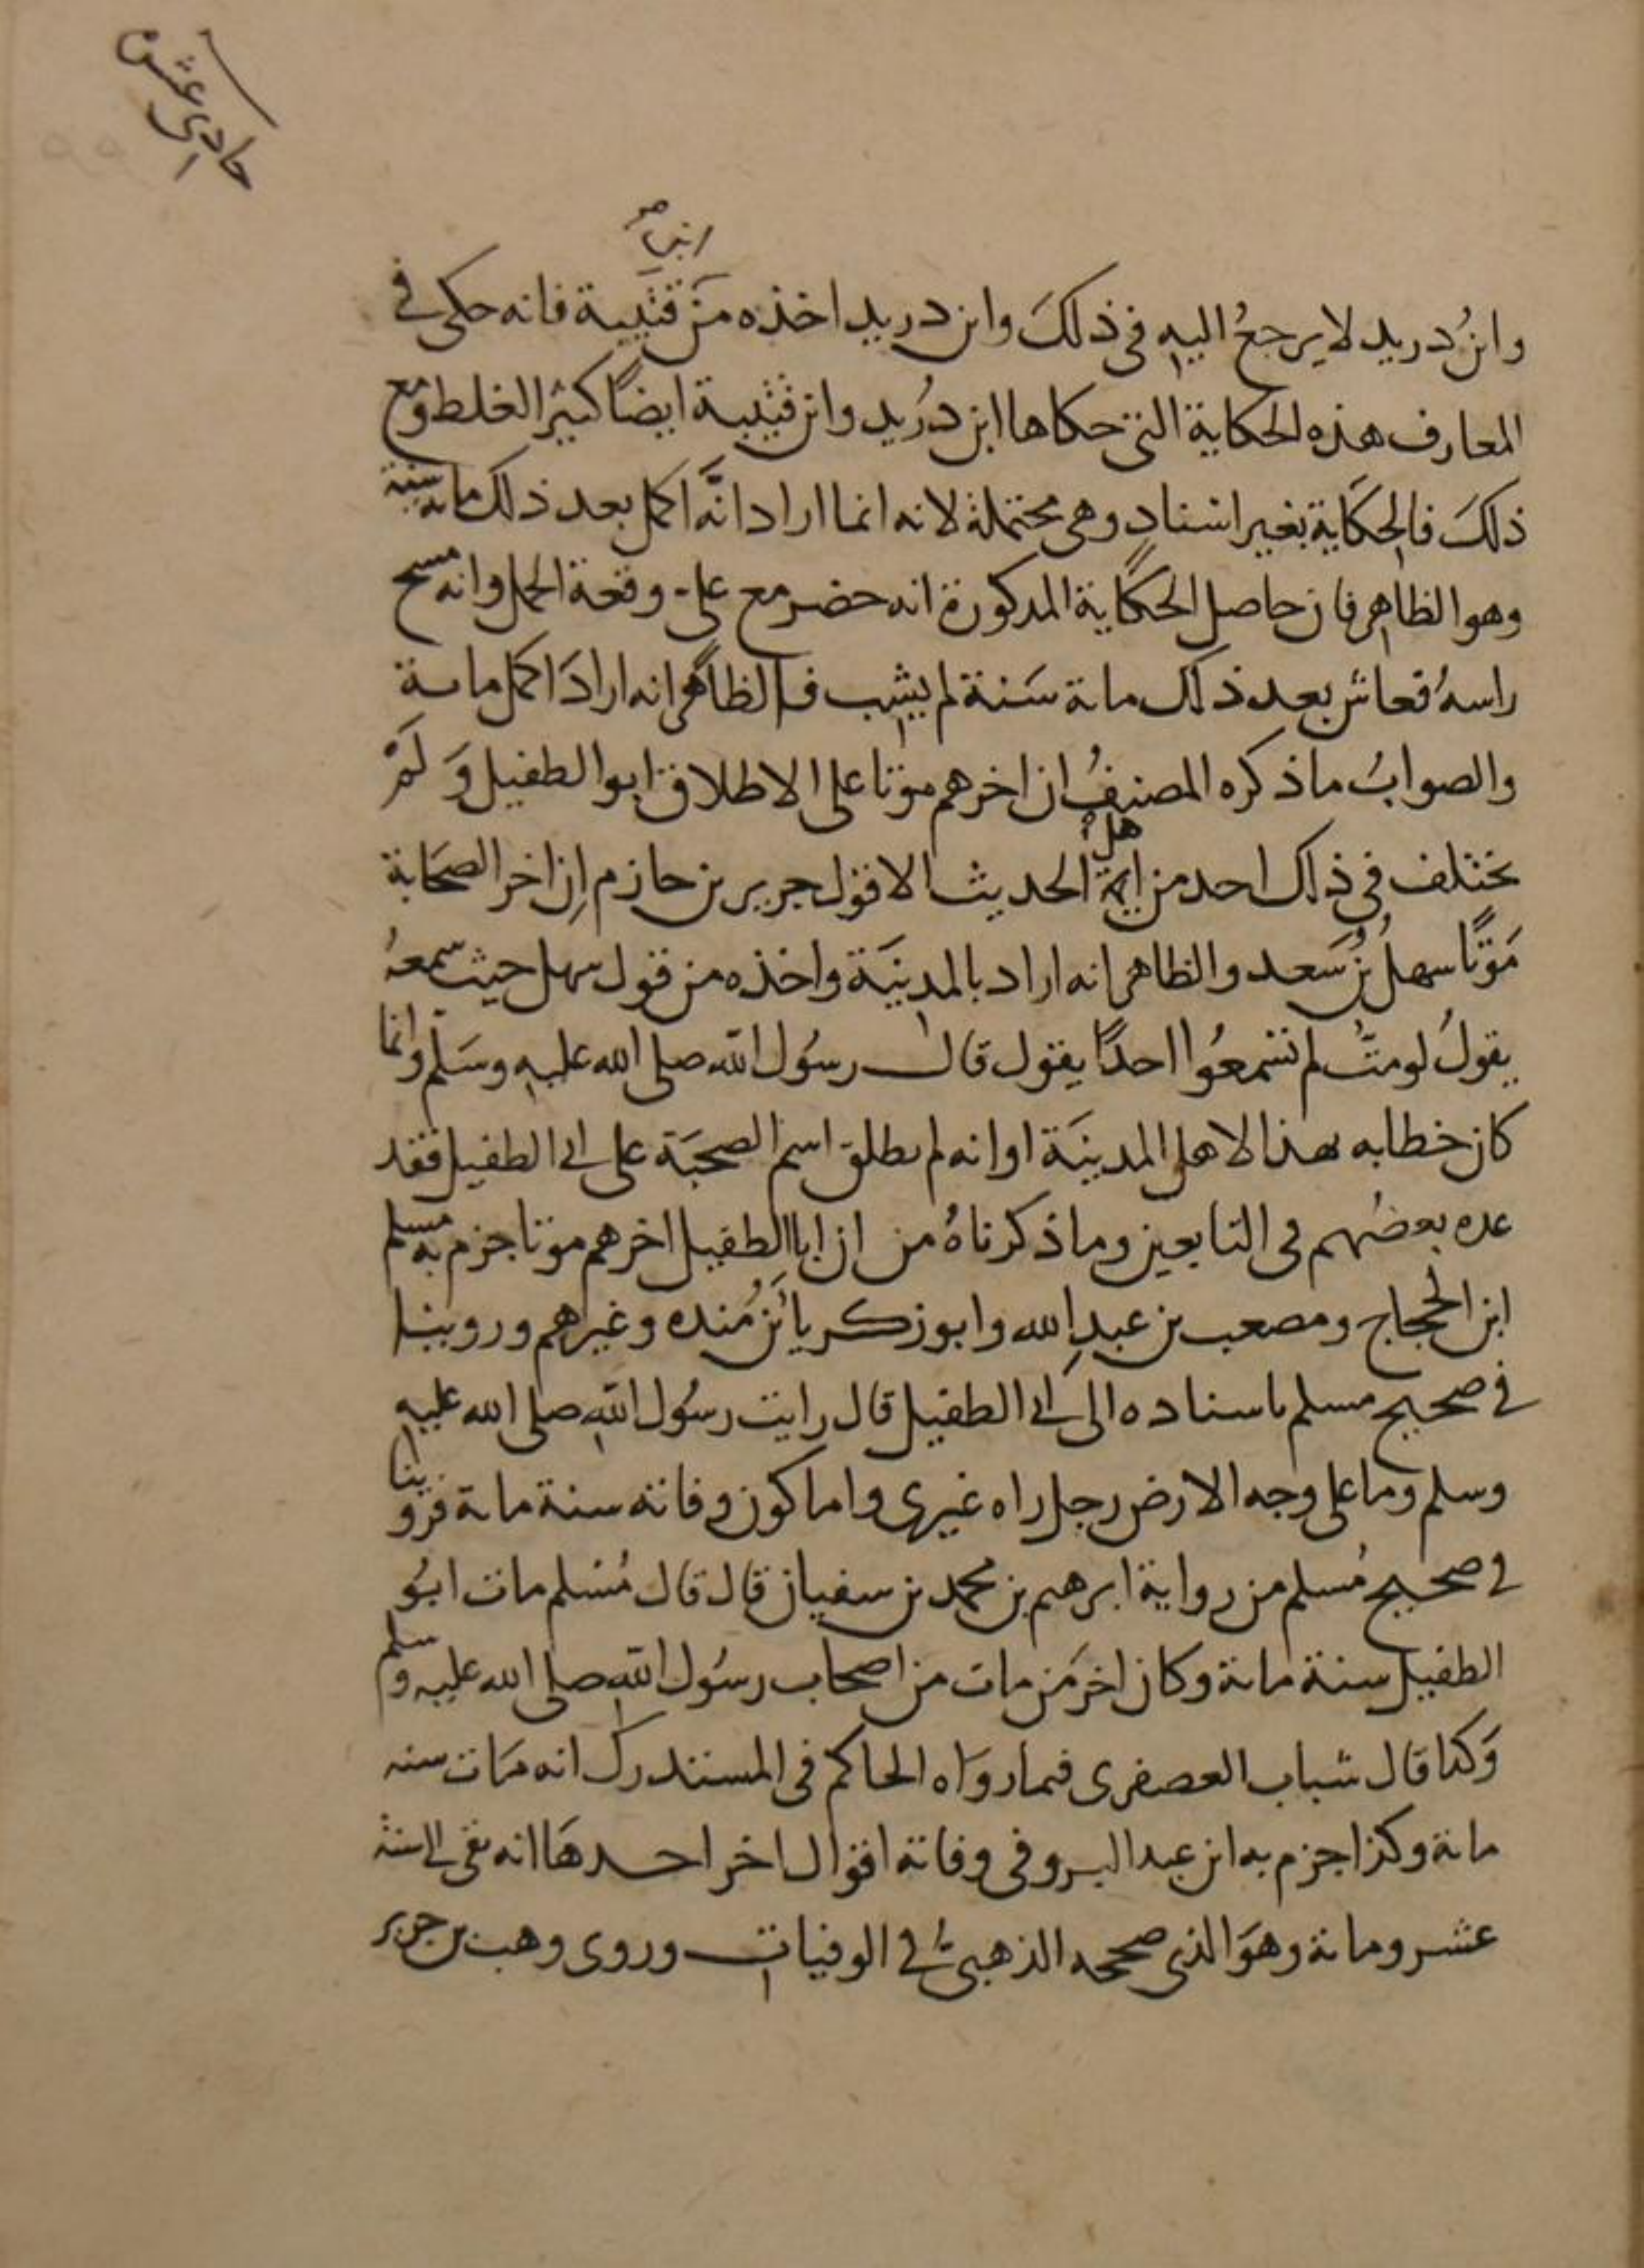 حادي عشر
ابن صح
وابنُ دريد لا يرجعُ اليه في ذلكَ وابن دريد اخذه من قتيبة فانه حكى في
المعارف هذه الحكاية التي حكاها ابن دُريد وابن قتيبة ايضًا كثير الغلط ومع
ذلكَ فالحكَاية بغير اسنادٍ وهي محتملة لانه انما اراد انَّه اكمل بعد ذلك مائة سنة
وهو الظاهر فان حاصل الحكاية المذكورة انه حضر مع علي وقعة الجمل وانه مسح
راسهُ فعاش بعد ذلك مائة سَنة لم يشب فالظاهر انه ارادَ اكمل مائة
والصوابُ ما ذكره المصنفُ ان اخرهم موتا على الاطلاق ابو الطفيل وَ لَمْ
يختلف في ذلك احد من ايمة اهل الحديث الا قول جرير بن حازم اِن اخر الصحَابة
مَوتًا سهلُ بنُ سَعد والظاهر انه اراد بالمدينَة واخذه من قول سهل حيث سمعهُ
يقولُ لو متُّ لم تسمعُوا احدًا يقول قال رسُول الله صلى الله عليه وسَلم وانما
كان خطابه هذا لاهل المدينَة او انه لم يطلق اسم الصحبَة على ابي الطفيل فقد
عده بعضُهم في التابعين وما ذكرناهُ من ان ابا الطفيل اخرهم موتا جزم به مسلم
ابن الحجاج ومصعب بن عبدِ الله وابو زكريا بنُ مُنده وغيرهم وروينا
في صحيح مسلم باسناده الى ابي الطفيل قال رايت رسُول الله صلى الله عليه
وسلم وما على وجه الارض رجل راه غيري واما كون وفاته سنة مائة فروينا
في صحيح مُسلم من رواية ابرهيم بن محمد بن سفيان قال قال مُسْلم مات ابوُ
الطفيل سنة مائة وكان اخر مَن مات من اصحاب رسُول الله صلى الله عليه وسلم
وَكذا قال شباب العصفري فيما روَاه الحاكم في المستدرك انه مَات سنه
مائة وكذا جزم به ابن عبد البر وفي وفاته اقوال اخر احدهَا انه بقي الى سنة
عشر ومائة وهوَ الذي صححه الذهبيُّ في الوفيات وروى وهب بن جرير